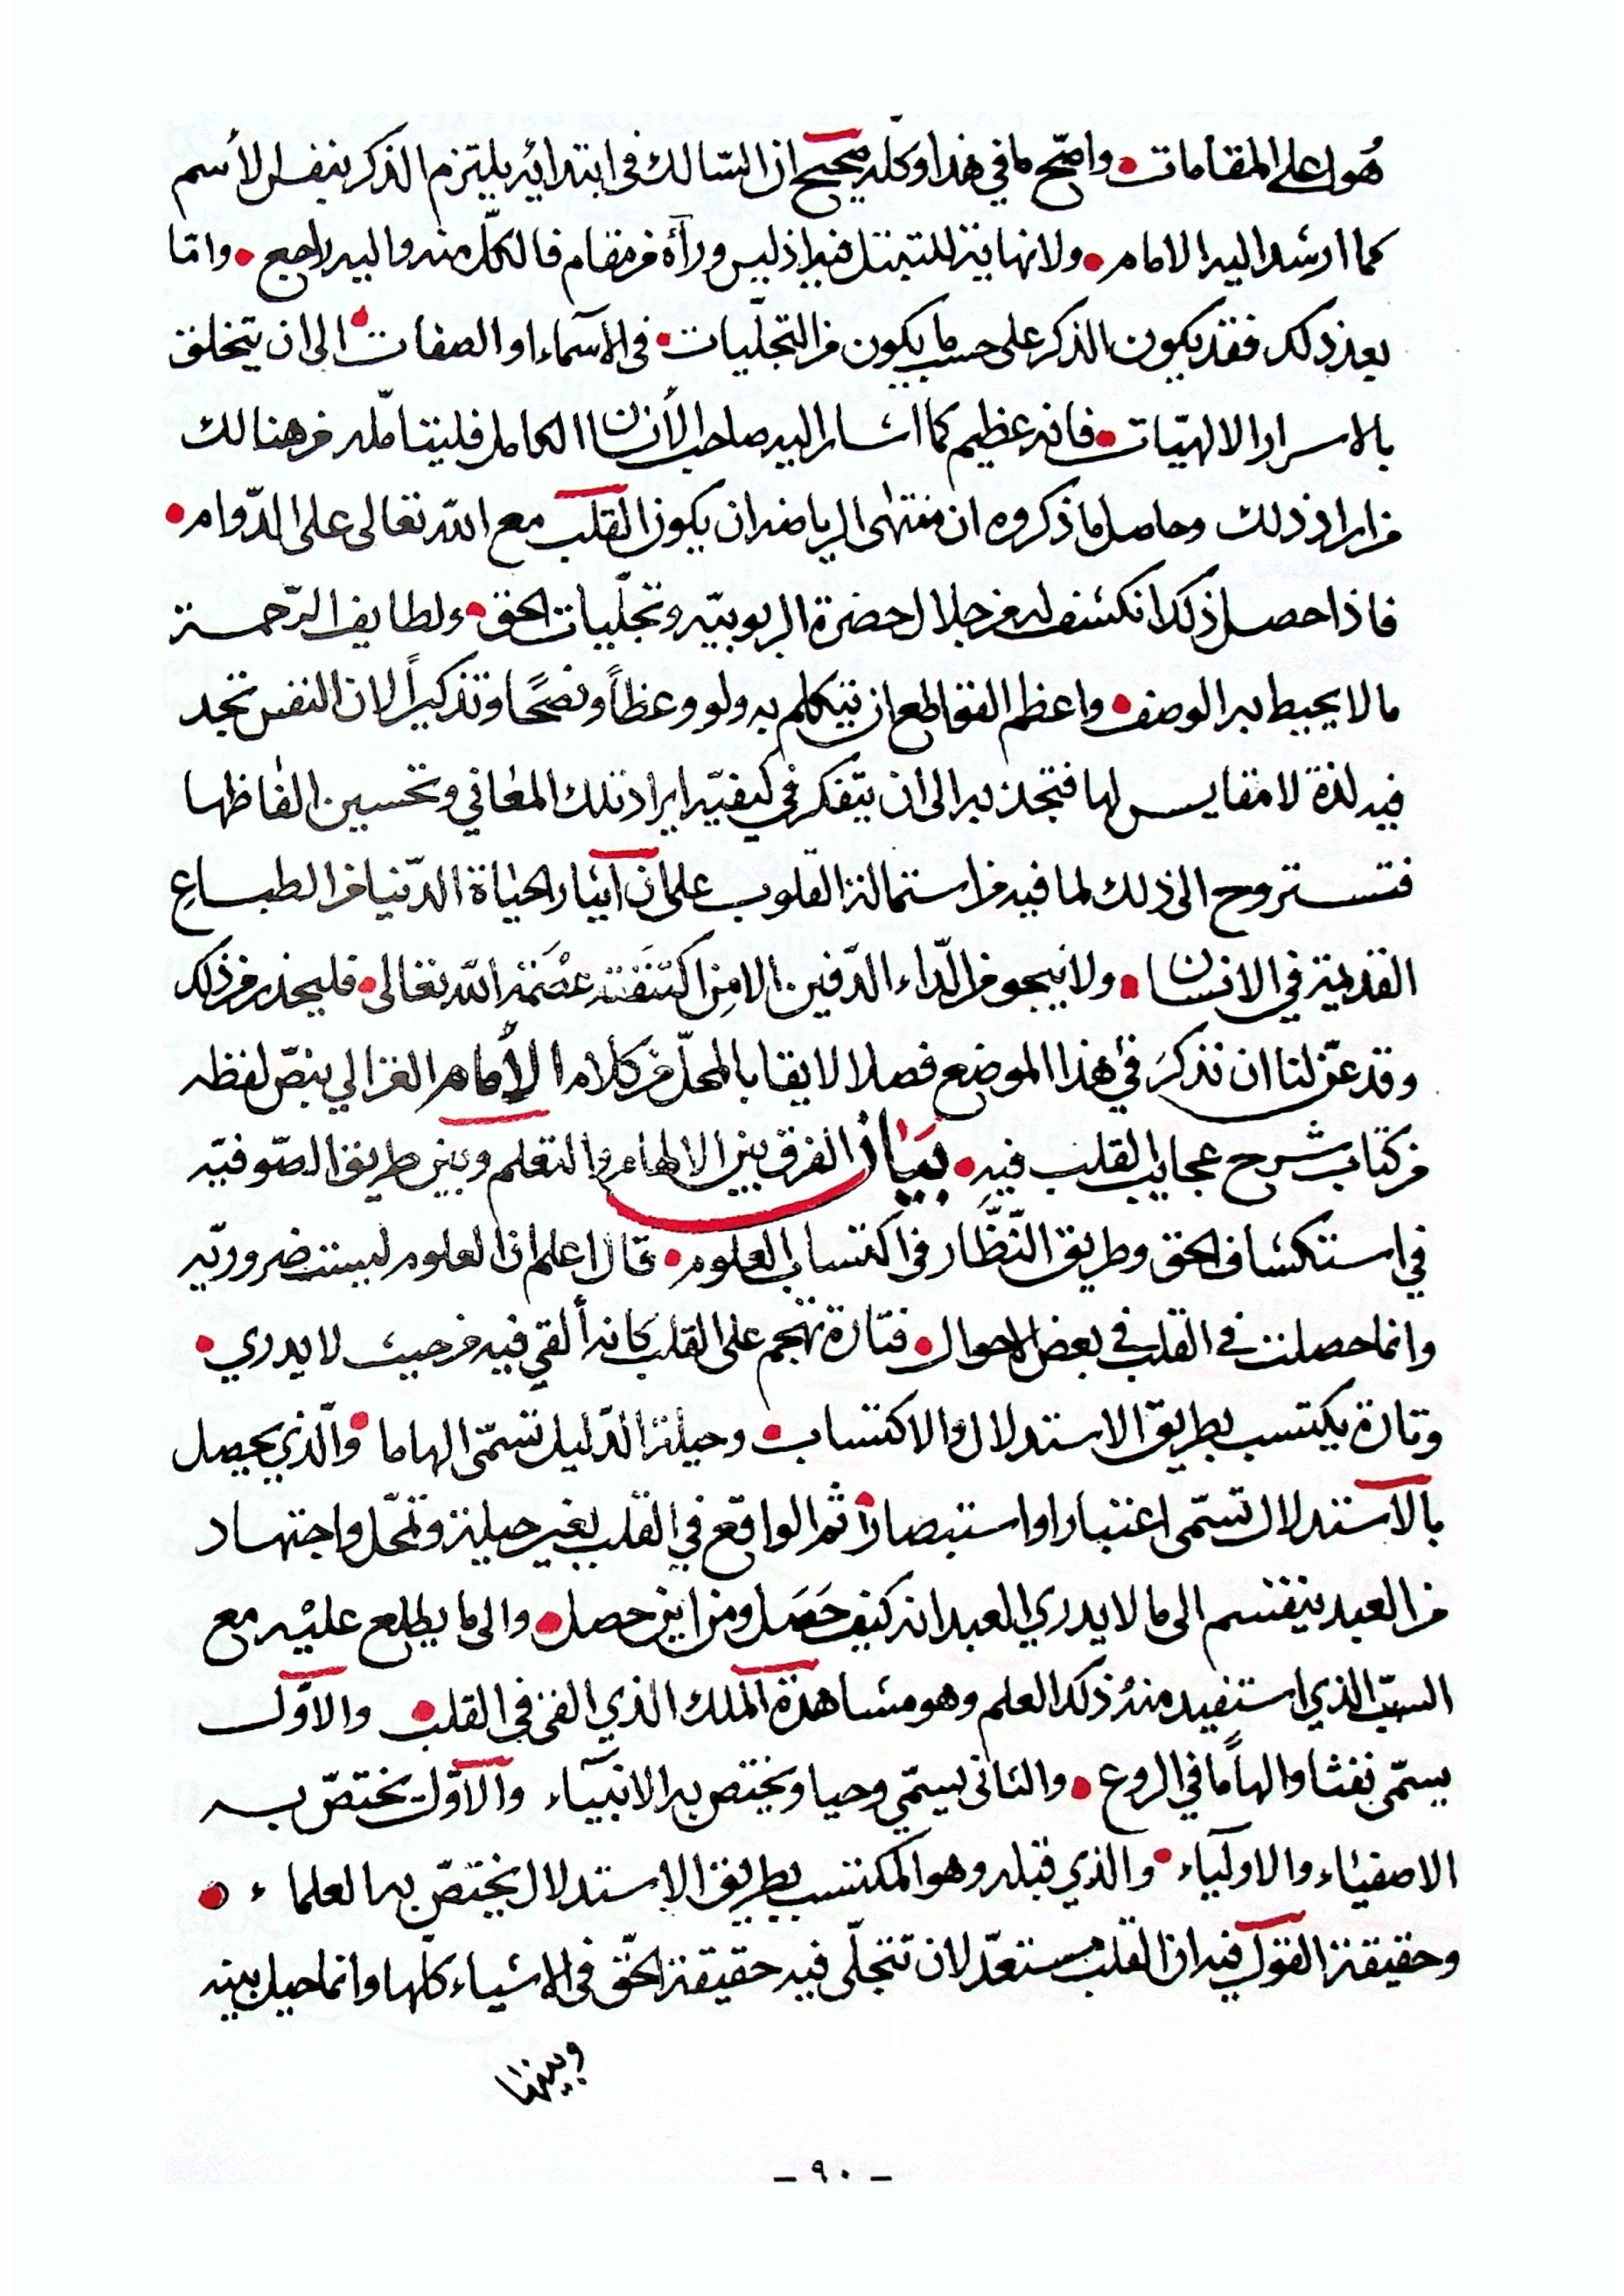 هُو اعلى المقامات • واصحّ ما في هذا وكله صحيح ان السّالك فى ابتدائه يلتزم الذكر بنفس الأسم
كما ارشد اليه الامام • ولا نهاية للتبتل فيه اذ ليس ورآه من مقام فالكلّ منه واليه راجع • وامّا
بعد ذلك فقد يكون الذكر على حسب ما يكون من التجلّيات • فى الآسماء او الصفات • الى ان يتخلق
بالاسرار الالهيّات • فانه عظيم كما اشار اليه صاحب الأنسان الكامل فليتامّله من هنالك
من اراد ذلك وحاصل ما ذكروه ان منتهى الرياضه ان يكون القلب مع الله تعالى على الدّوام •
فاذا حصل ذلك انكشف له من جلال حضرة الربوبيّه وتجلّيات الحق • ولطايف الرّحمة
ما لا يحيط به الوصف • واعظم القواطع ان يتكلم به ولو وعظاً ونصحًا وتذكيراً لان النفس تجد
فيه لذة لا مقايس لها فتجذبه الى ان يتفكر في كيفيّه ايراد تلك المعاني وتحسين الفاظها
فتستروح الى ذلك لما فيه من استمالة القلوب على ان آيثار الحياة الدّنيا من الطباع
القديمة في الانسان • ولا ينجو من الدّاء الدّفين الا من اكتنفته عصَمة الله تعالى • فليحذر من ذلك
وقد عنّ لنا ان نذكرَ في هذا الموضع فصلا لايقا بالمحلّ من كلام الأمام الغزالي بنصّ لفظه
من كتاب شرح عجايب القلب فيهِ • بَيَان الفرق بين الالهام والتعلم وبين طريق الصّوفيّه
في استكشاف الحق وطريق النّظَّار في اكتساب العلوم • قال اعلم ان العلوم ليست ضروريّه
وانما حصلت في القلب في بعض الاحوال • فتارة تهجم على القلب كانه ألقي فيه من حيث لا يدري •
وتارة يكتسب بطريق الاستدلال والاكتساب • وحيلة الدّليل تسمّى الهاما • والّذي يحصل
بالآستدلال تسمّى اعتبارا واستبصارا • ثم الواقع في القلب بغير حيلة وتمحّل واجتهاد
من العبد ينقسم الى ما لا يدري العبد انه كيف حَصَل ومن اين حصل • والى ما يطلع عليْه مع
السبب الذي استفيد منهُ ذلك العلم وهو مشاهدة الملك الذي القى في القلب • والاوّل
يسمّى نفثا والهاًما في الروع • والثانى يسمّي وحيا ويختص به الانبيآء والآوّل يختصّ به
الاصفيآء والاوليآء • والذي قبله وهو المكتسب بطريق الاستدلال يختصّ به العلماء •
وحقيقة القول فيه ان القلب مستعدّ لان تتجلّى فيه حقيقة الحّق في الاشياء كلّها وانما حيل بينه
وبينها
- ٩٠ -